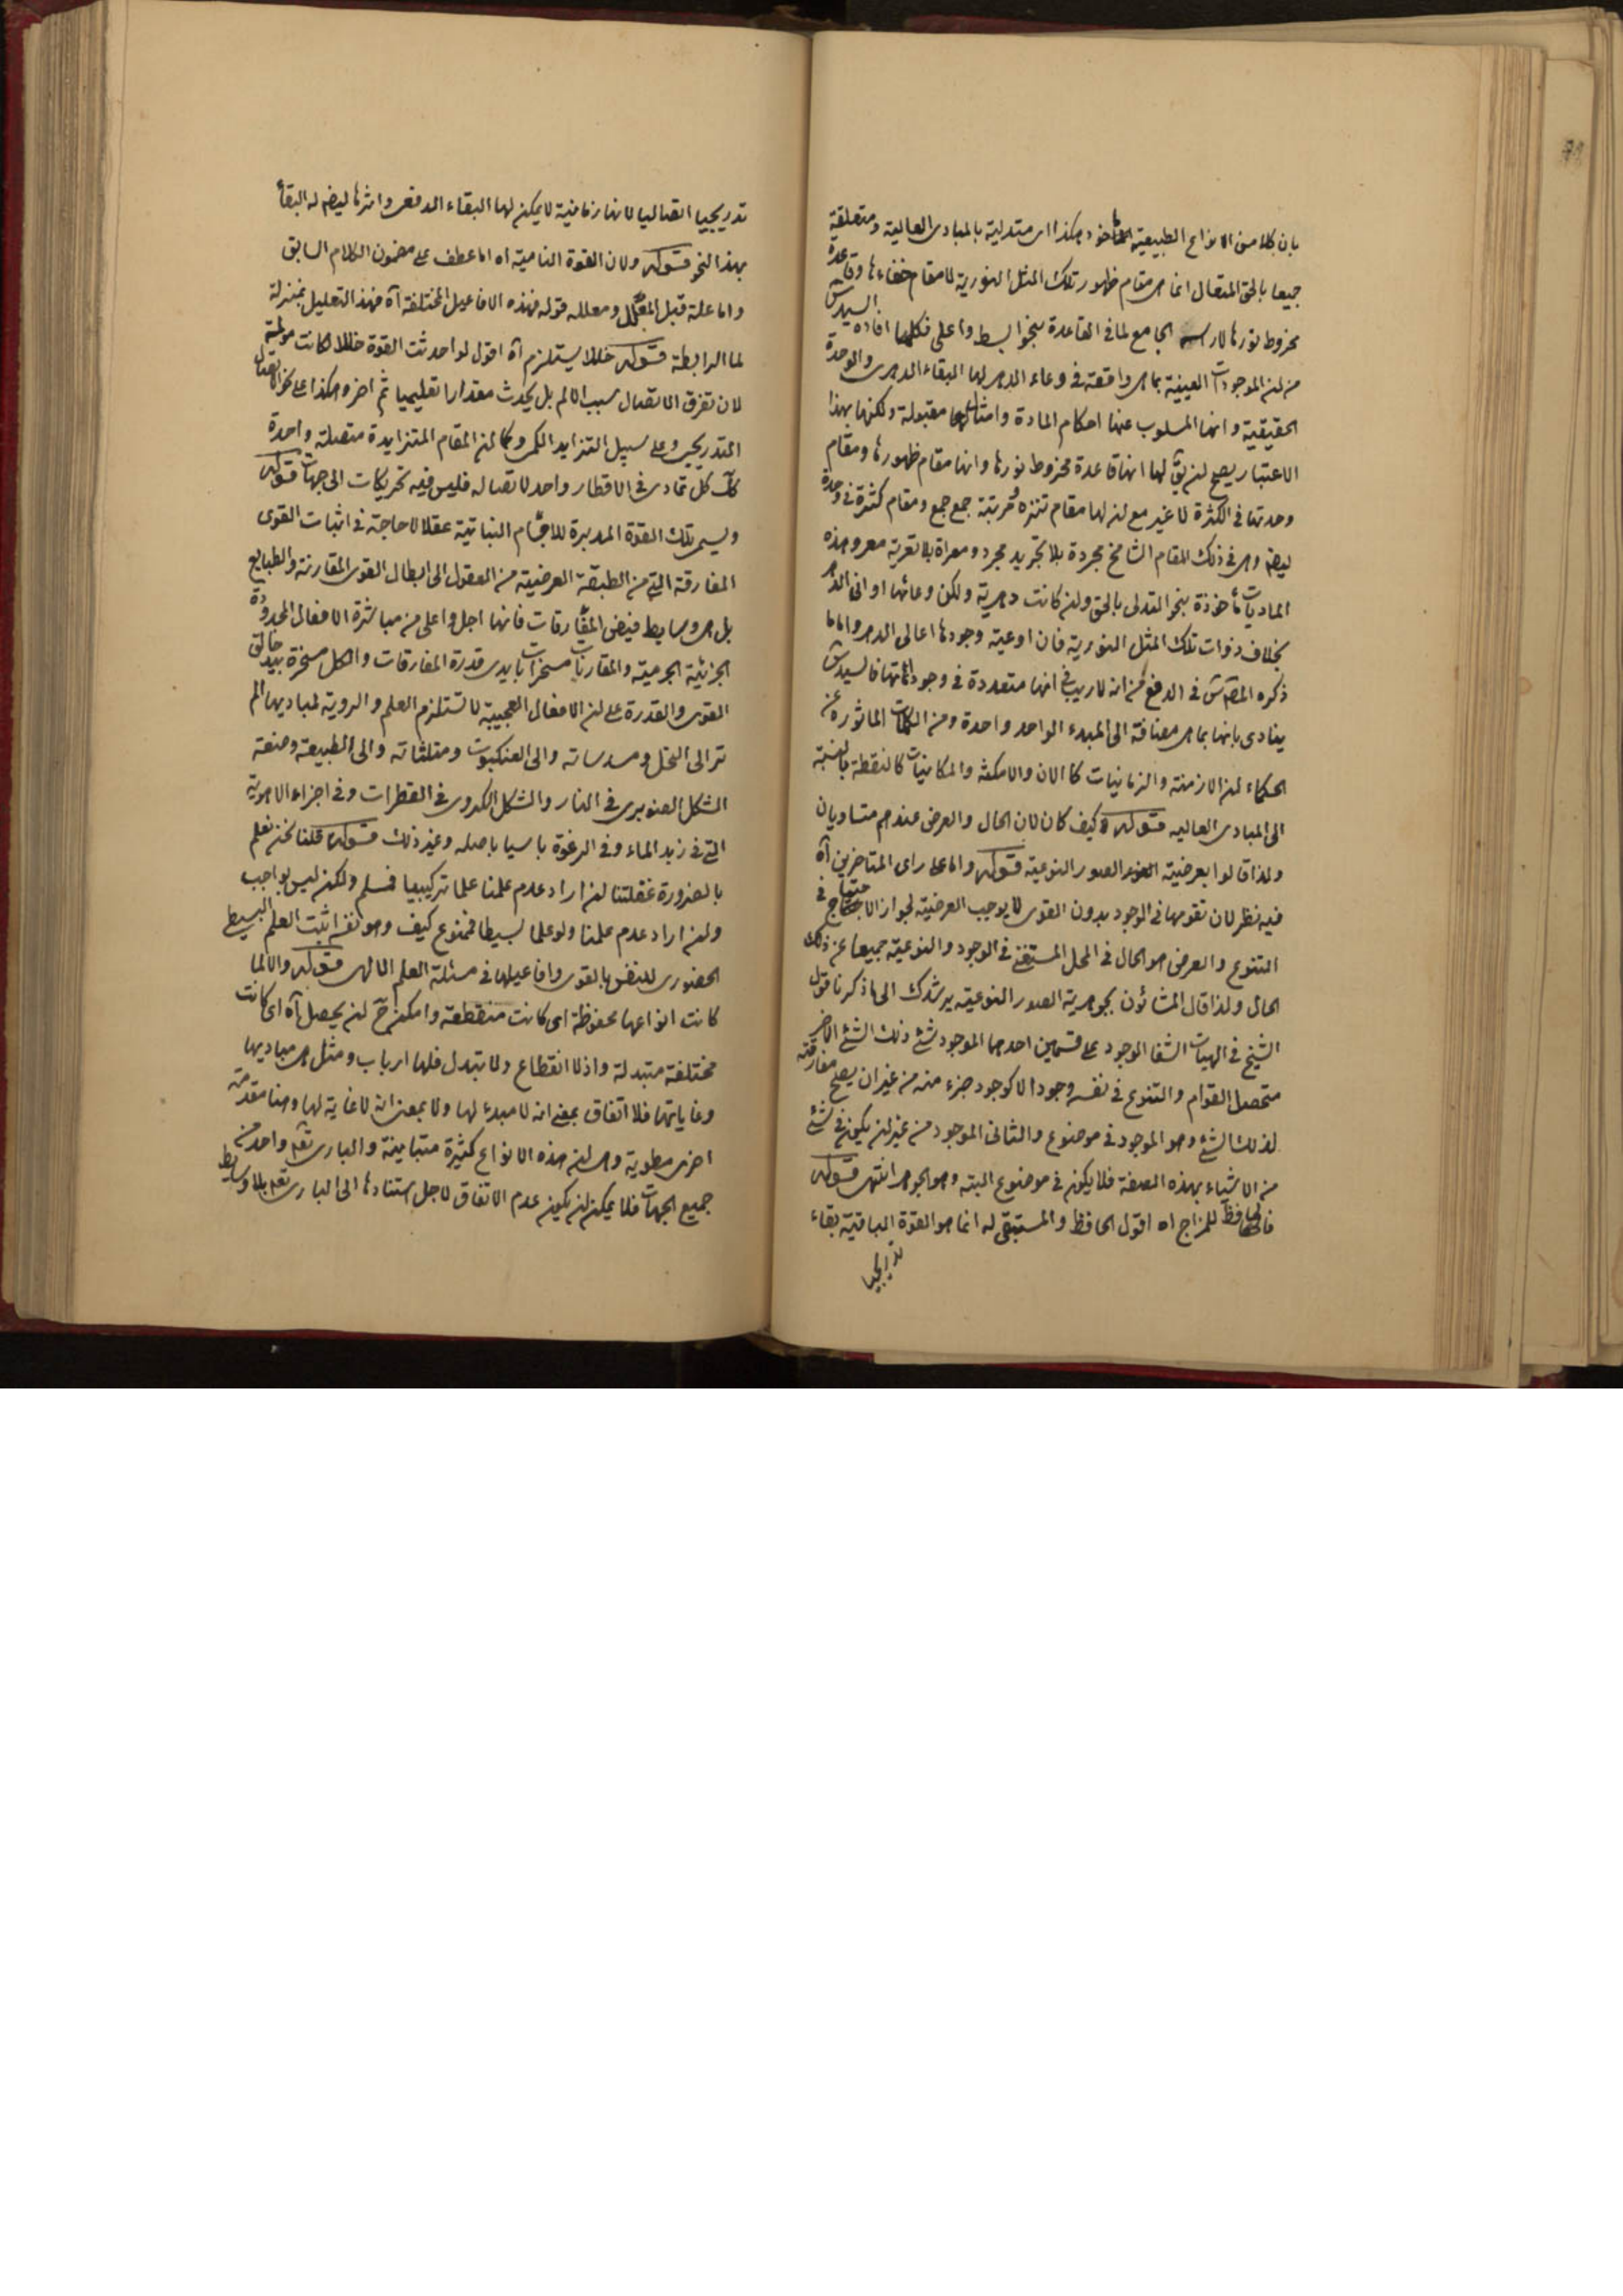 بان كلا من الانواع الطبيعية المأخوذ هكذا اى متدلية بالمبادى العالية ومتعلقة
جميعا بالحق المتعال انما هى مقام ظهور تلك المثل النورية لا مقام خفاءها وقاعدة
مخروط نورها لا راسه الجامع لما فى القاعدة بنحو ابسط واعلى فكلما افاده السيد س
من ان الموجودات العينية بما هى واقعة فى وعاء الدهر لها البقاء الدهرى والوحدة
الحقيقية وانها المسلوب عنها احكام المادة وامثالها مقبولة ولكنها بهذا
الاعتبار يصح ان يق لها انها قاعدة مخروط نورها وانها مقام ظهورها ومقام
وحدتها فى الكثرة لا غير مع ان لها مقام تنزه ومرتبة جمع جمع ومقام كثرة فى وحدة
ايضا وهى فى ذلك المقام الشامخ مجردة بلا تجريد مجرد ومعراة بلا تعرية معر وهذه
الماديات مأخوذة بنحو التدلى بالحق وان كانت دهرية ولكن وعائها ادانى الدهر
بخلاف ذوات تلك المثل النورية فان اوعية وجودها اعالى الدهر واما ما
ذكره المص س فى الدفع من انه لا ريب فى انها متعددة فى وجوداتها فالسيد س
ينادى بانها بما هى مضافة الى المبدء الواحد واحدة ومن الكلمات الماثورة عن
الحكماء ان الازمنة والزمانيات كالان والامكنة والمكانيات كالنقطة بالنسبة
الى المبادى العاليه قوله وكيف كان لان الحال والعرض عندهم متساويان
ولذا قالوا بعرضية الصور النوعية قوله واما على راى المتاخرين آه
فيه نظر لان تقومها فى الوجود بدون القوى لا يوجب العرضية لجواز الاحتياج فى
التنوع والعرض هو الحال فى المحل المستغنى فى الوجود والنوعية جميعا عن ذلك
الحال ولذا قال المشائون بجوهرية الصور النوعيه يرشدك الى ما ذكرنا قول
الشيخ فى الهيات الشفا الموجود على قسمين احدهما الموجود فى شئ ذلك الشئ الاخر
متحصل القوام والتنوع فى نفسه وجودا لا كوجود جزء منه من غير ان يصح مفارقته
لذلك الشئ وهو الموجود فى موضوع والثانى الموجود من غير ان يكون فى شئ
من الاشياء بهذه الصفة فلا يكون فى موضوع البته وهو الجوهر انتهى قوله
فالحافظ للمزاج اه اقول الحافظ والمستبقى له انما هو القوة الباقية بقاء
تدريجيا
تدريجيا اتصاليا لانها زمانية لا يمكن لها البقاء الدفعى واثرها ايضا له البقاء
بهذا النحو قوله ولان القوة النامية اه اما عطف على مضمون الكلام السابق
واما علة قبل المعلل ومعلله قوله فهذه الافاعيل المختلفة آه فهذا التعليل بمنزلة
لما الرابطة قوله خللا يستلزم آه اقول لو احدثت القوة خللا لكانت مولمة
لان تفرق الاتصال سبب الالم بل يحدث مقدارا تعليميا ثم اخر وهكذا على نحو الاتصال
التدريجى وعلى سبيل التزايد الكمى وكما ان المقام المتزايدة متصلة واحدة
كك كل تمادى فى الاقطار واحد لاتصاله فليس فيه تحريكات الى جهات قوله
ويسمى تلك القوة المدبرة للاجسام النباتية عقلا لا حاجة فى اثبات القوى
المفارقة التى من الطبقة العرضية من العقول الى ابطال القوى المقارنة والطبايع
بل هى وسايط فيض المفارقات فانها اجل واعلى من مباشرة الافعال المحدودة
الجزئية الجرمية والمقارنات مسخرات بايدى قدرة المفارقات والكل مسخرة بيد خالق
القوى والقدرة على ان الافعال العجيبة لا تستلزم العلم والروية لمباديها الم
تر الى النحل ومسدساته والى العنكبوت ومثلثاته والى الطبيعة وصنعة
الشكل الصنوبرى فى النار والشكل الكروى فى القطرات وفى اجزاء الاهوية
التى فى زبد الماء وفى الرغوة باسيا باصله وغير ذلك قوله قلنا نحن نعلم
بالضرورة غفلتنا ان اراد عدم علمنا علما تركيبيا فمسلم ولكن ليس بواجب
وان اراد عدم علمنا ولو علما بسيطا فممنوع كيف وهو نفسه اثبت العلم البسيط
الحضورى للنفس بالقوى وافاعيلها فى مسئلة العلم الالهى قوله والا لما
كانت انواعها محفوظة اى كانت منقطعة وامكن ح ان يحصل آه اى كانت
مختلفة متبدلة واذ لا انقطاع ولا تبدل فلها ارباب ومثل هى مباديها
وغاياتها فلا اتفاق بمعنى انه لا مبدء لها ولا بمعنى انه لا غاية لها وهنا مقدمة
اخرى مطوية وهى ان هذه الانواع كثيرة متباينة والبارى تعم واحد من
جميع الجهات فلا يمكن ان يكون عدم الاتفاق لاجل استنادها الى البارى تعم بلا وسايط